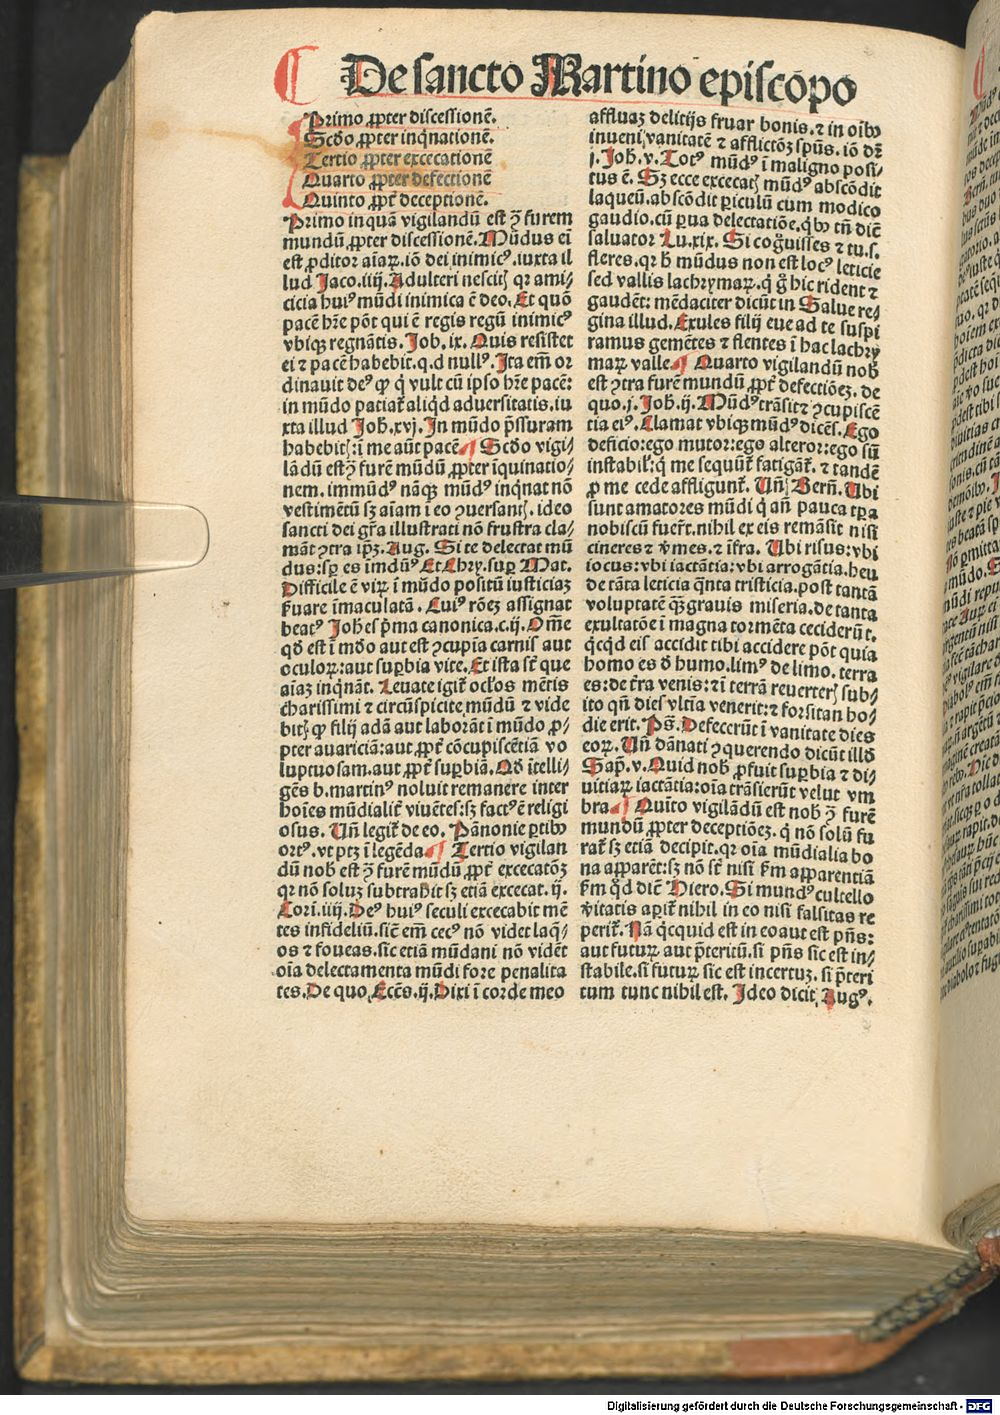 De sancto Martino episcopo
Primo ꝓpter discessionē.
Scďo ꝓpter inq̇nationē.
Tertio ꝓpter excecationē
Quarto ꝓpter defectionē
Quinto ꝓpt̄ deceptionē.
Primo inquā vigilandū est ꝯ̄ furem
mundū ꝓpter discessionē. Mūdus em̄
est ꝓditor aīaꝝ. iō dei inimicꝰ. iuxta il
lud Jaco. iiij. Adulteri nescitꝭ qꝛ ami⸗
cicia huiꝰ mūdi inimica ē deo. Et quō
pacē hr̄e pōt qui ē regis regū inimicꝰ
vbiqꝫ regnātis. Job. ix. Quis resistet
ei ⁊ pacē habebit. q. d nullꝰ. Ita em̄ or
dinauit deꝰ ꝙ q̇ vult cū ipso hr̄e pacē:
in mūdo patiat̄ aliqḋ aduersitatis. iu
xta illud Joh. xvj. In mūdo p̄ssuram
habebitꝭ: ī me aūt pacē ¶ Scďo vigi⸗
lādū est ꝯ̄ furē mūdū ꝓpter īquinatio⸗
nem. immūdꝰ nāqꝫ mūdꝰ inq̇nat nō
vestimētū sꝫ aīam ī eo ꝯuersantꝭ. ideo
sancti dei gr̄a illustrati nō frustra cla⸗
māt ꝯtra ip̄ꝫ. Aug. Si te delectat mū
dus: sp̄ es īmūdꝰ Et Chry. suꝑ Mat.
Difficile ē viꝝ ī mūdo positū iusticiaꝫ
ẜuare īmaculatā. Cuiꝰ rōeꝫ assignat
beatꝰ Joh̄es p̄ma canonica. c. ij. Om̄e
qḋ est ī mďo aut est ꝯcupīa carnis aut
oculoꝝ: aut suꝑbia vite. Et ista st̄ que
aīaꝫ inq̇nāt. Leuate igit̄ ocl̓os mētis
charissimi ⁊ circūspicite mūdū ⁊ vide
bitꝭ ꝙ filij adā aut laborāt ī mūdo ꝓ⸗
pter auariciā: aut ꝓpt̄ cōcupiscētiā vo
luptuosam. aut ꝓpt̄ suꝑbiā. Qḋ ītelli⸗
gēs b. martinꝰ noluit remanere inter
hoīes mūdialit̄ viuētes: sꝫ factꝰ ē religi
osus. Un̄ legit̄ de eo. Pānonie ꝑtibꝰ
ortꝰ. vt ptꝫ ī legēda ¶ Tertio vigilan
dū nob̄ est ꝯ̄ furē mūdū ꝓpt̄ excecatōꝫ
qꝛ nō soluꝫ subtrahit sꝫ etiā excecat. ij.
Cori. iiij. Deꝰ huiꝰ seculi excecabit mē
tes infideliū. sic̄ em̄ cecꝰ nō videt laq̄⸗
os ⁊ foueas. sic etiā mūdani nō vidēt
oīa delectamenta mūdi fore penalita
tes. De quo Eccēs. ij. Dixi ī corde meo
affluaꝫ delitijs fruar bonis. ⁊ in oībꝰ
inueni vanitatē ⁊ afflictōꝫ sp̄us. iō dr̄
j. Joh. v. Totꝰ mūdꝰ ī maligno posi⸗
tus ē. Sꝫ ecce excecatꝭ mūdꝰ abscōdit
laqueū. abscōdit ꝑiculū cum modico
gaudio. cū ꝑua delectatiōe. q̇bꝰ tn̄ dic̄
saluator Lu. xix. Si cog̓uisses ⁊ tu. s.
fleres. qꝛ h̄ mūdus non est locꝰ leticie
sed vallis lachrymaꝝ. q̇ g̓ hic rident ⁊
gaudēt: mēdaciter dicūt in Salue re⸗
gina illud. Exules filij eue ad te suspi
ramus gemētes ⁊ flentes ī hac lachry
maꝝ valle ¶ Quarto vigilandū nob̄
est ꝯtra furē mundū ꝓpt̄ defectiōeꝫ. de
quo. j. Joh. ij. Mūdꝰ trāsit ⁊ ꝯcupiscē
tia eiꝰ. Clamat vbiqꝫ mūdꝰ dicēs. Ego
deficio: ego mutor: ego alteror: ego sū
instabil̓: q̇ me sequūt̄ fatigāt̄. ⁊ tandē
ꝓ me cede affligunt̄. Un̄ Bern̄. Ubi
sunt amatores mūdi q̇ an̄ pauca tꝑa
nobiscū fuer̄t. nihil ex eis remāsit nisi
cineres ⁊ v̄mes. ⁊ īfra. Ubi risus: vbi
iocus: vbi iactātia: vbi arrogātia. heu
de tāta leticia q̄nta tristicia. post tantā
voluptatē qꝫ grauis miseria. de tanta
exultatōe ī magna tormēta ceciderūt.
q̇cqḋ eis accidit tibi accidere pōt quia
homo es ď humo. limꝰ de limo. terra
es: de t̄ra venis: ⁊ ī terrā reuerterꝭ sub⸗
ito qn̄ dies vltīa venerit: ⁊ forsitan ho⸗
die erit. Ps̄. Defecerūt ī vanitate dies
eoꝝ. Un̄ dānati ꝯquerendo dicūt illď
Sap̄. v. Quid nob̄ ꝓfuit suꝑbia ⁊ di⸗
uitiaꝝ iactātia: oīa trāsierūt velut vm
bra ¶ Quīto vigilādū est nob̄ ꝯ̄ furē
mundū ꝓpter deceptiōeꝫ. q̇ nō solū fu
rat̄ sꝫ etiā decipit. qꝛ oīa mūdialia bo
na apparēt: sꝫ nō st̄ nisi ẜm apparentiā
ẜm qḋ dic̄ Hiero. Si mundꝰ cultello
v̄itatis aꝑit̄ nihil in eo nisi falsitas re
perit̄. Nā q̇cquid est in eo aut est p̄ns:
aut futuꝝ aut p̄teritū. si p̄ns sic est in⸗
stabile. si futuꝝ sic est incertuꝫ. si p̄teri
tum tunc nihil est. Ideo dicit Augꝰ.
Digitalisierung gefördert durch die Deutsche Forschungsgemeinschaft - DFG